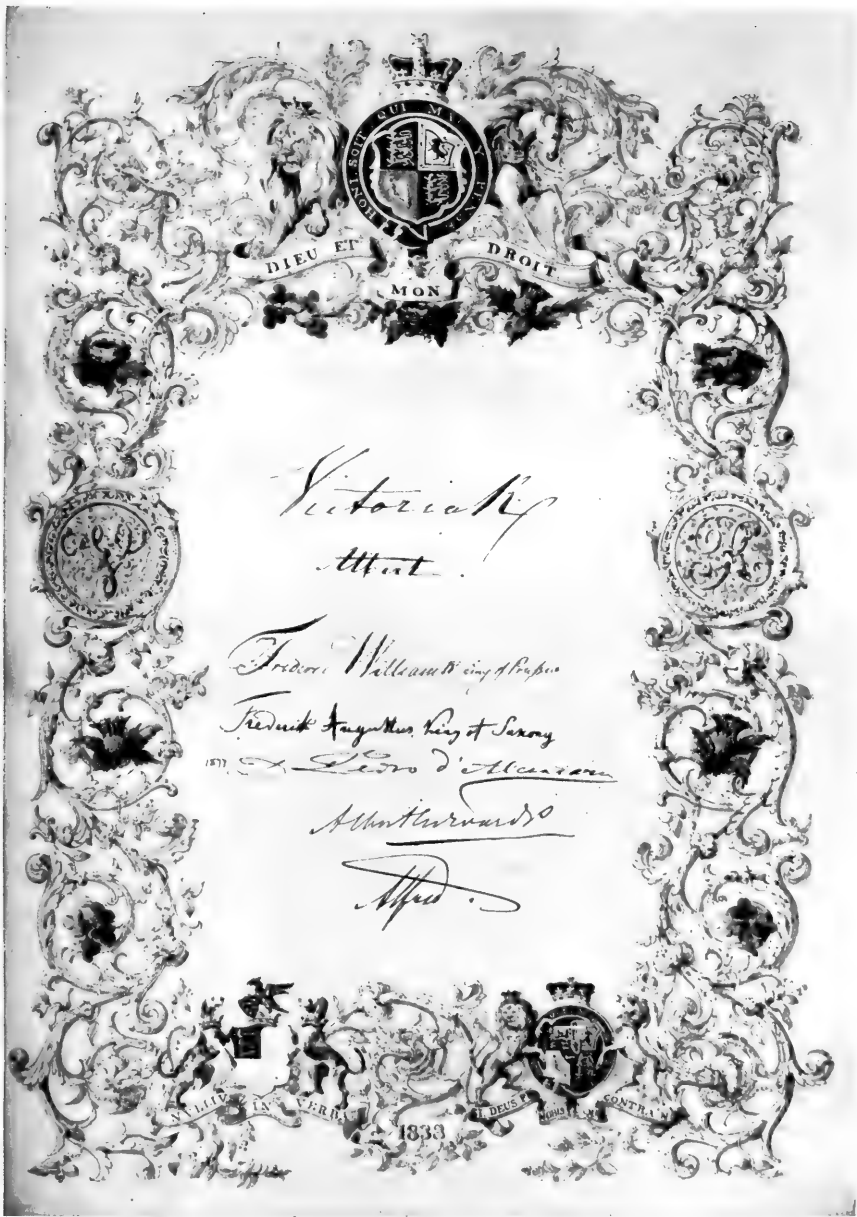 HONI SOIT QUI MAL Y PENSE
DIEU ET MON DROIT
Victoria R
Albert.
Frederic William IV king of Prussia
Frederik Augustus, King of Saxony
1877 D. Pedro d'Alcantara
Albert Edward
Alfred.
NULLIUS IN VERBA
SI DEUS
NOBIS
CONTRA N
1833